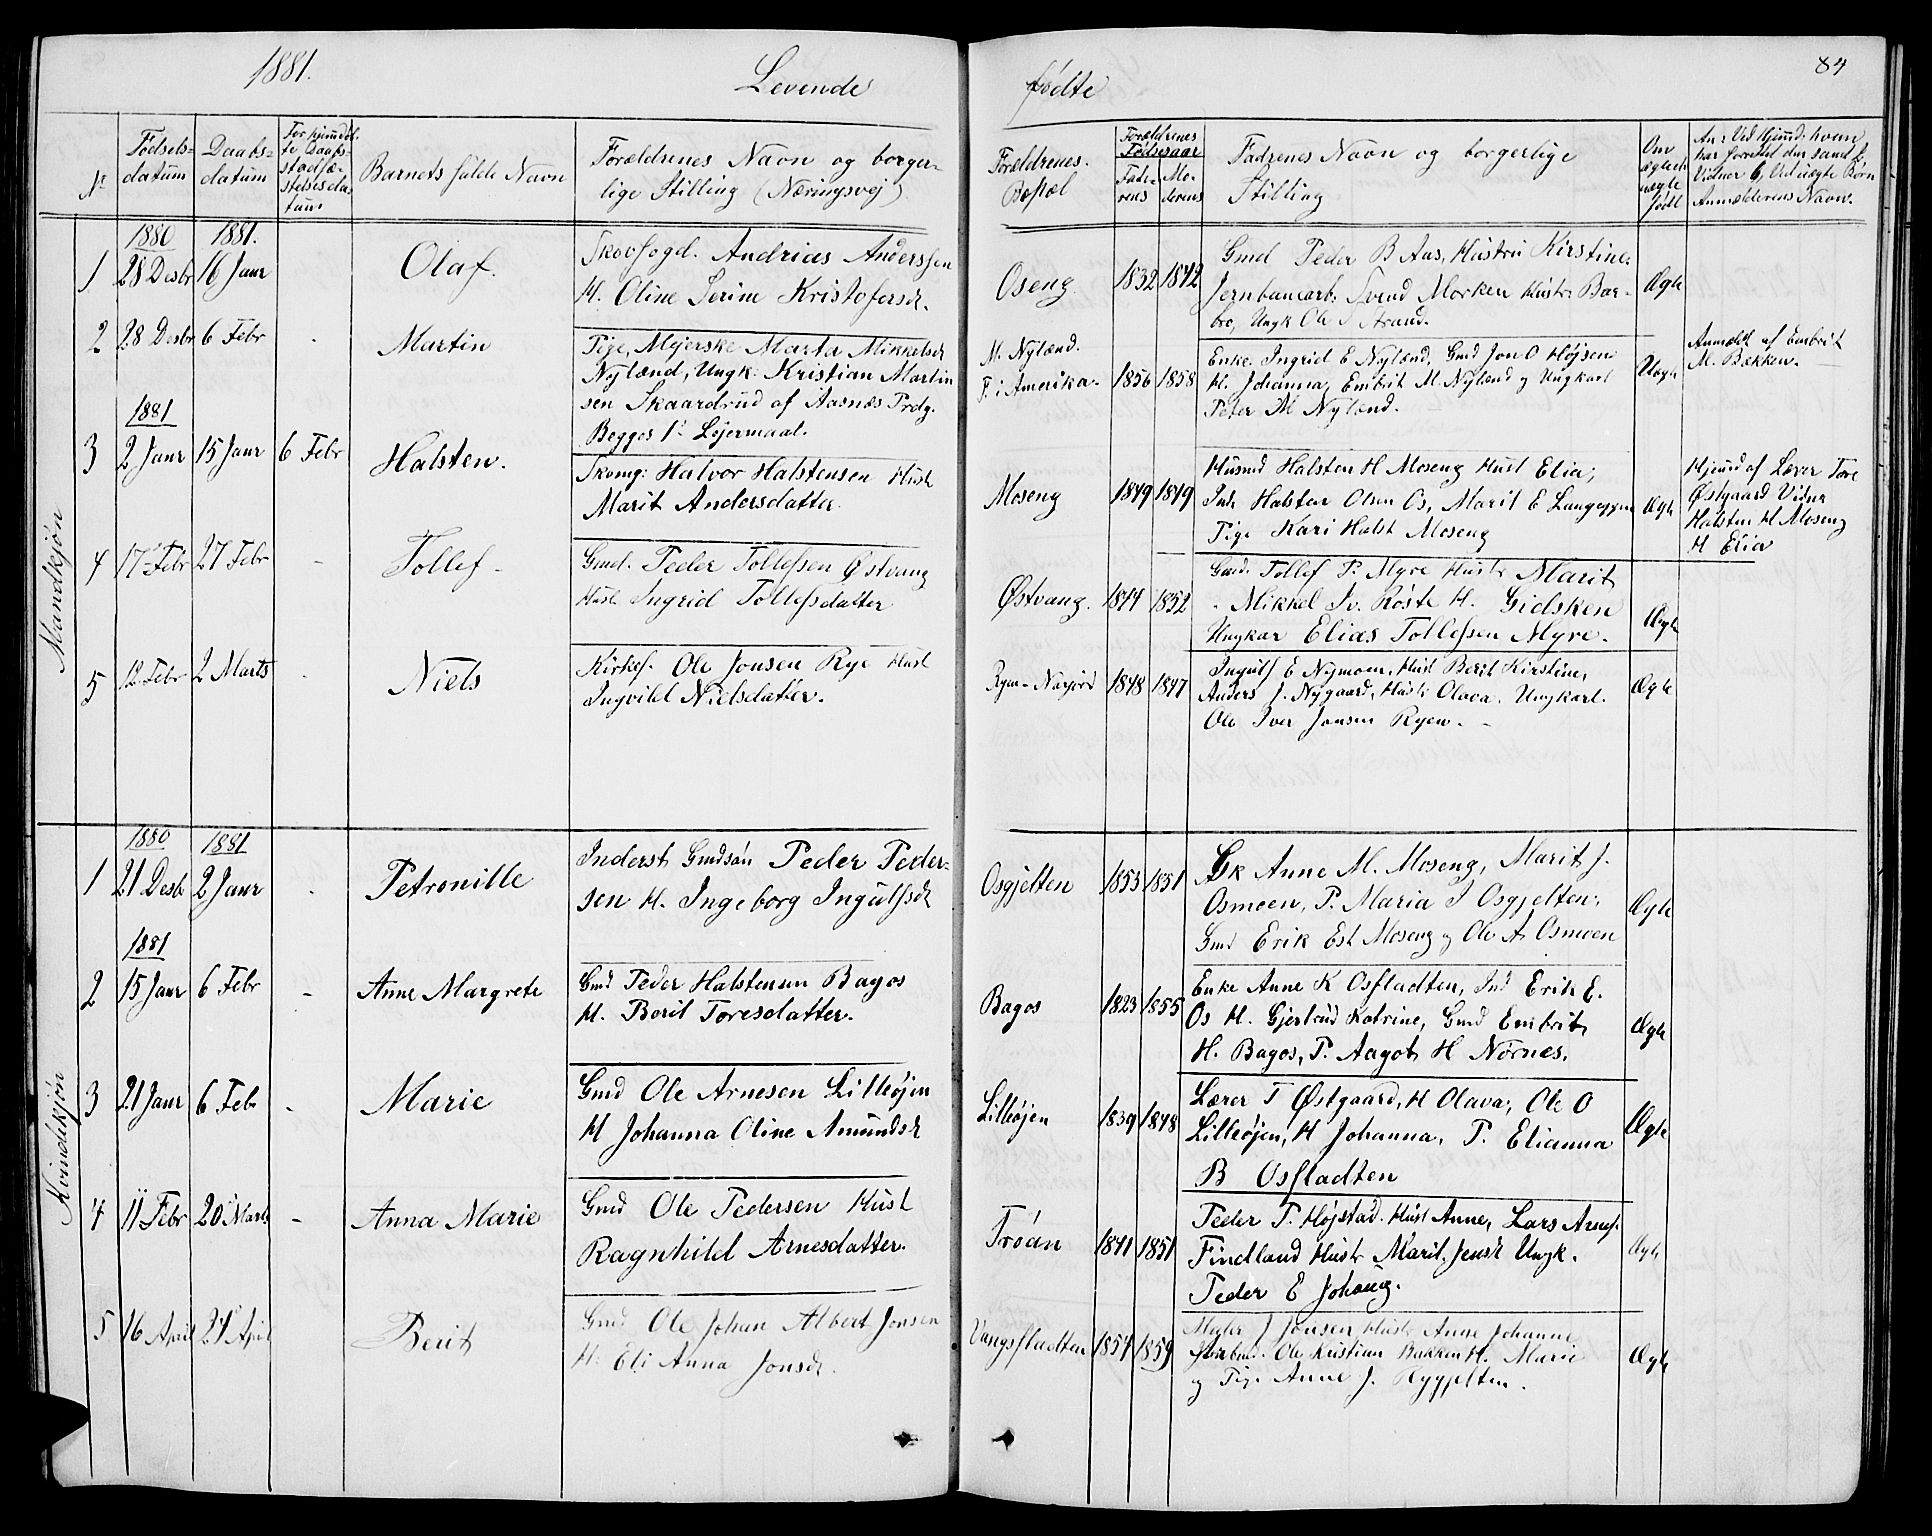 1881.
Levende
fødte
84
No
Fødsels-
datum
Daabs-
datum
For hjemdøb-
te Daabs-
stadfæ-
stelsesda-
tum
Barnets fulde Navn
Forældrenes Navn og borger-
lige Stilling (Næringsvej)
Forældrenes
Bopæl
Forældrenes
Fødselsaar
Fade-
rens
Mo-
derens
Fadrenes Navn og borgerlige
Stilling
Om
ægte el.
uægte
født
Vidner
Uægte Børn
Anmelderens Navn.
Mandkjøn
1880 1881.
1 28 Desbr 16 Janr
Olaf.
Skovfogd. Andrias Anderssen
H. Oline Serine Kristofersd.
Oseng 1832 1842
Gmd Peder B Aas, Hustru Kirstine,
Jernbanearb. Svend Morken Hustr. Bar-
bro, Ungk Ole S Strand.
Ægte
2 28 Desbr 6 Febr -
Martin
Pige, Mejerske Marta Mikkelsd
Nylænd, Ungk. Kristian Martin
sen Skaardrud af Aasnæs Prdg.
Begges 1ste Lejermaal.
M. Nylænd.
F. i Amerika. 1856 1858
Enke Ingrid E Nylænd, Gmd Jon O Højsen
H. Johanna, Embrit M. Nylænd og Ungkarl
Peter M Nylænd.
Uægte
Anmeldt af Embrit
M. Bakken.
1881
3 2 Janr 15 Janr 6 Febr
Halsten.
Skomg: Halvor Halstensen Hust
Marit Andersdatter.
Moseng 1849 1849
Husmd Halsten H Moseng Hust Elia;
Ind. Halsten Olsen Os, Marit E Langeggen
Pige Kari Halst Moseng
Ægte
Hjemd af Lærer Tore
Østgaard Vidne
Halsten H Moseng
H Elia
4 17 Febr 27 Febr -
Tollef
Gmd. Peder Tollefsen Østvang
Hust Ingrid Tollefsdatter
Østvang. 1844 1852
Gmd. Tollef P. Myre Hustr Marit
Mikkel Iv. Røste H. Gidsken
Ungkar Elias Tollefsen Myre.
Ægte
5 12 Febr 2 Marts -
Niels
Kirkes. Ole Jonsen Rye Hust
Ingvild Nielsdatter.
Ryen-Narjord 1848 1847
Ingulf E Nymoen, Hust Berit Kirstine,
Anders J. Nygaard, Hustr Olava. Ungkarl.
Ole Iver Jonsen Ryen.
Ægte
Kvindekjøn
1880 1881
1 21 Desbr 2 Janr -
Petronille
Inderst Gmdsøn Peder Peder-
sen H. Ingeborg Ingulfsd
Osgjelten 1853 1851
Gk Anne M. Moseng, Marit J.
Osmoen, P. Maria I Osgjelten,
Gmd Erik Est Moseng og Ole A Osmoen
Ægte
1881
2 15 Janr 6 Febr -
Anne Margrete
Gmd Peder Halstensen Bagos
H. Berit Toresdatter.
Bagos 1823 1855
Enke Anne K Osfladten, Ind Erik E.
Os H. Gjertrud Katrine, Gmd Embrit
H. Bagos, P. Aagot H Nørnes,
Ægte
3 21 Janr 6 Febr -
Marie
Gmd Ole Arnesen Lilleøjen
H Johanna Oline Amundsd
Lilleøjen 1839 1848
Lærer T Østgaard, H Olava, Ole O
Lilleøjen, H Johanna, P. Elianna
B Osfladten
Ægte
4 11 Febr 20 Marts -
Anna Marie
Gmd Ole Pedersen Hust
Ragnhild Arnesdatter.
Trøan 1841 1851
Peder P. Højstad. Hust Anne, Lars Arnes.
Findland Hustr Marit Jensd Ungk.
Peder E Johaug.
Ægte
5 16 April 24 April
Berit
Gmd Ole Johan Albert Jonsen
H. Eli Anna Jonsd.
Vangsfladten 1854 1859
J Jonsen Hustr Anne Johanne
Ole Kristian Bakken H. Marie
og Pige Anne J. Ryggjelten.
Ægte